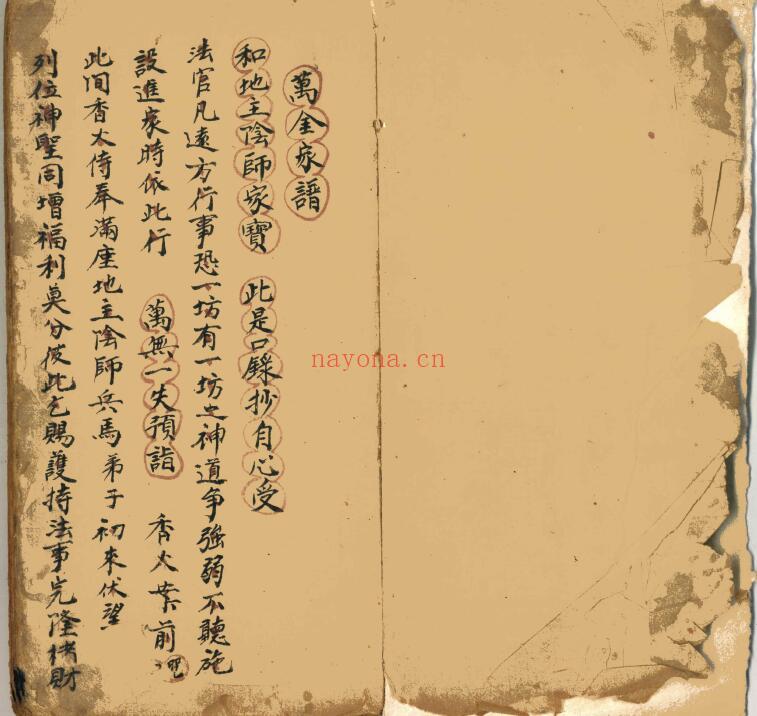 萬金家譜
和地主陰師家寶 此是口錄抄自心受
法官凡遠方行事恐一坊有一坊之神道爭強弱不聽施
設進家時依此行 萬無一失預詣 香火案前
此间香火侍奉滿座地主陰師兵馬弟子初來伏望
列位神聖同增福利莫分彼此乞賜護持法事完隆財
nayona.cn